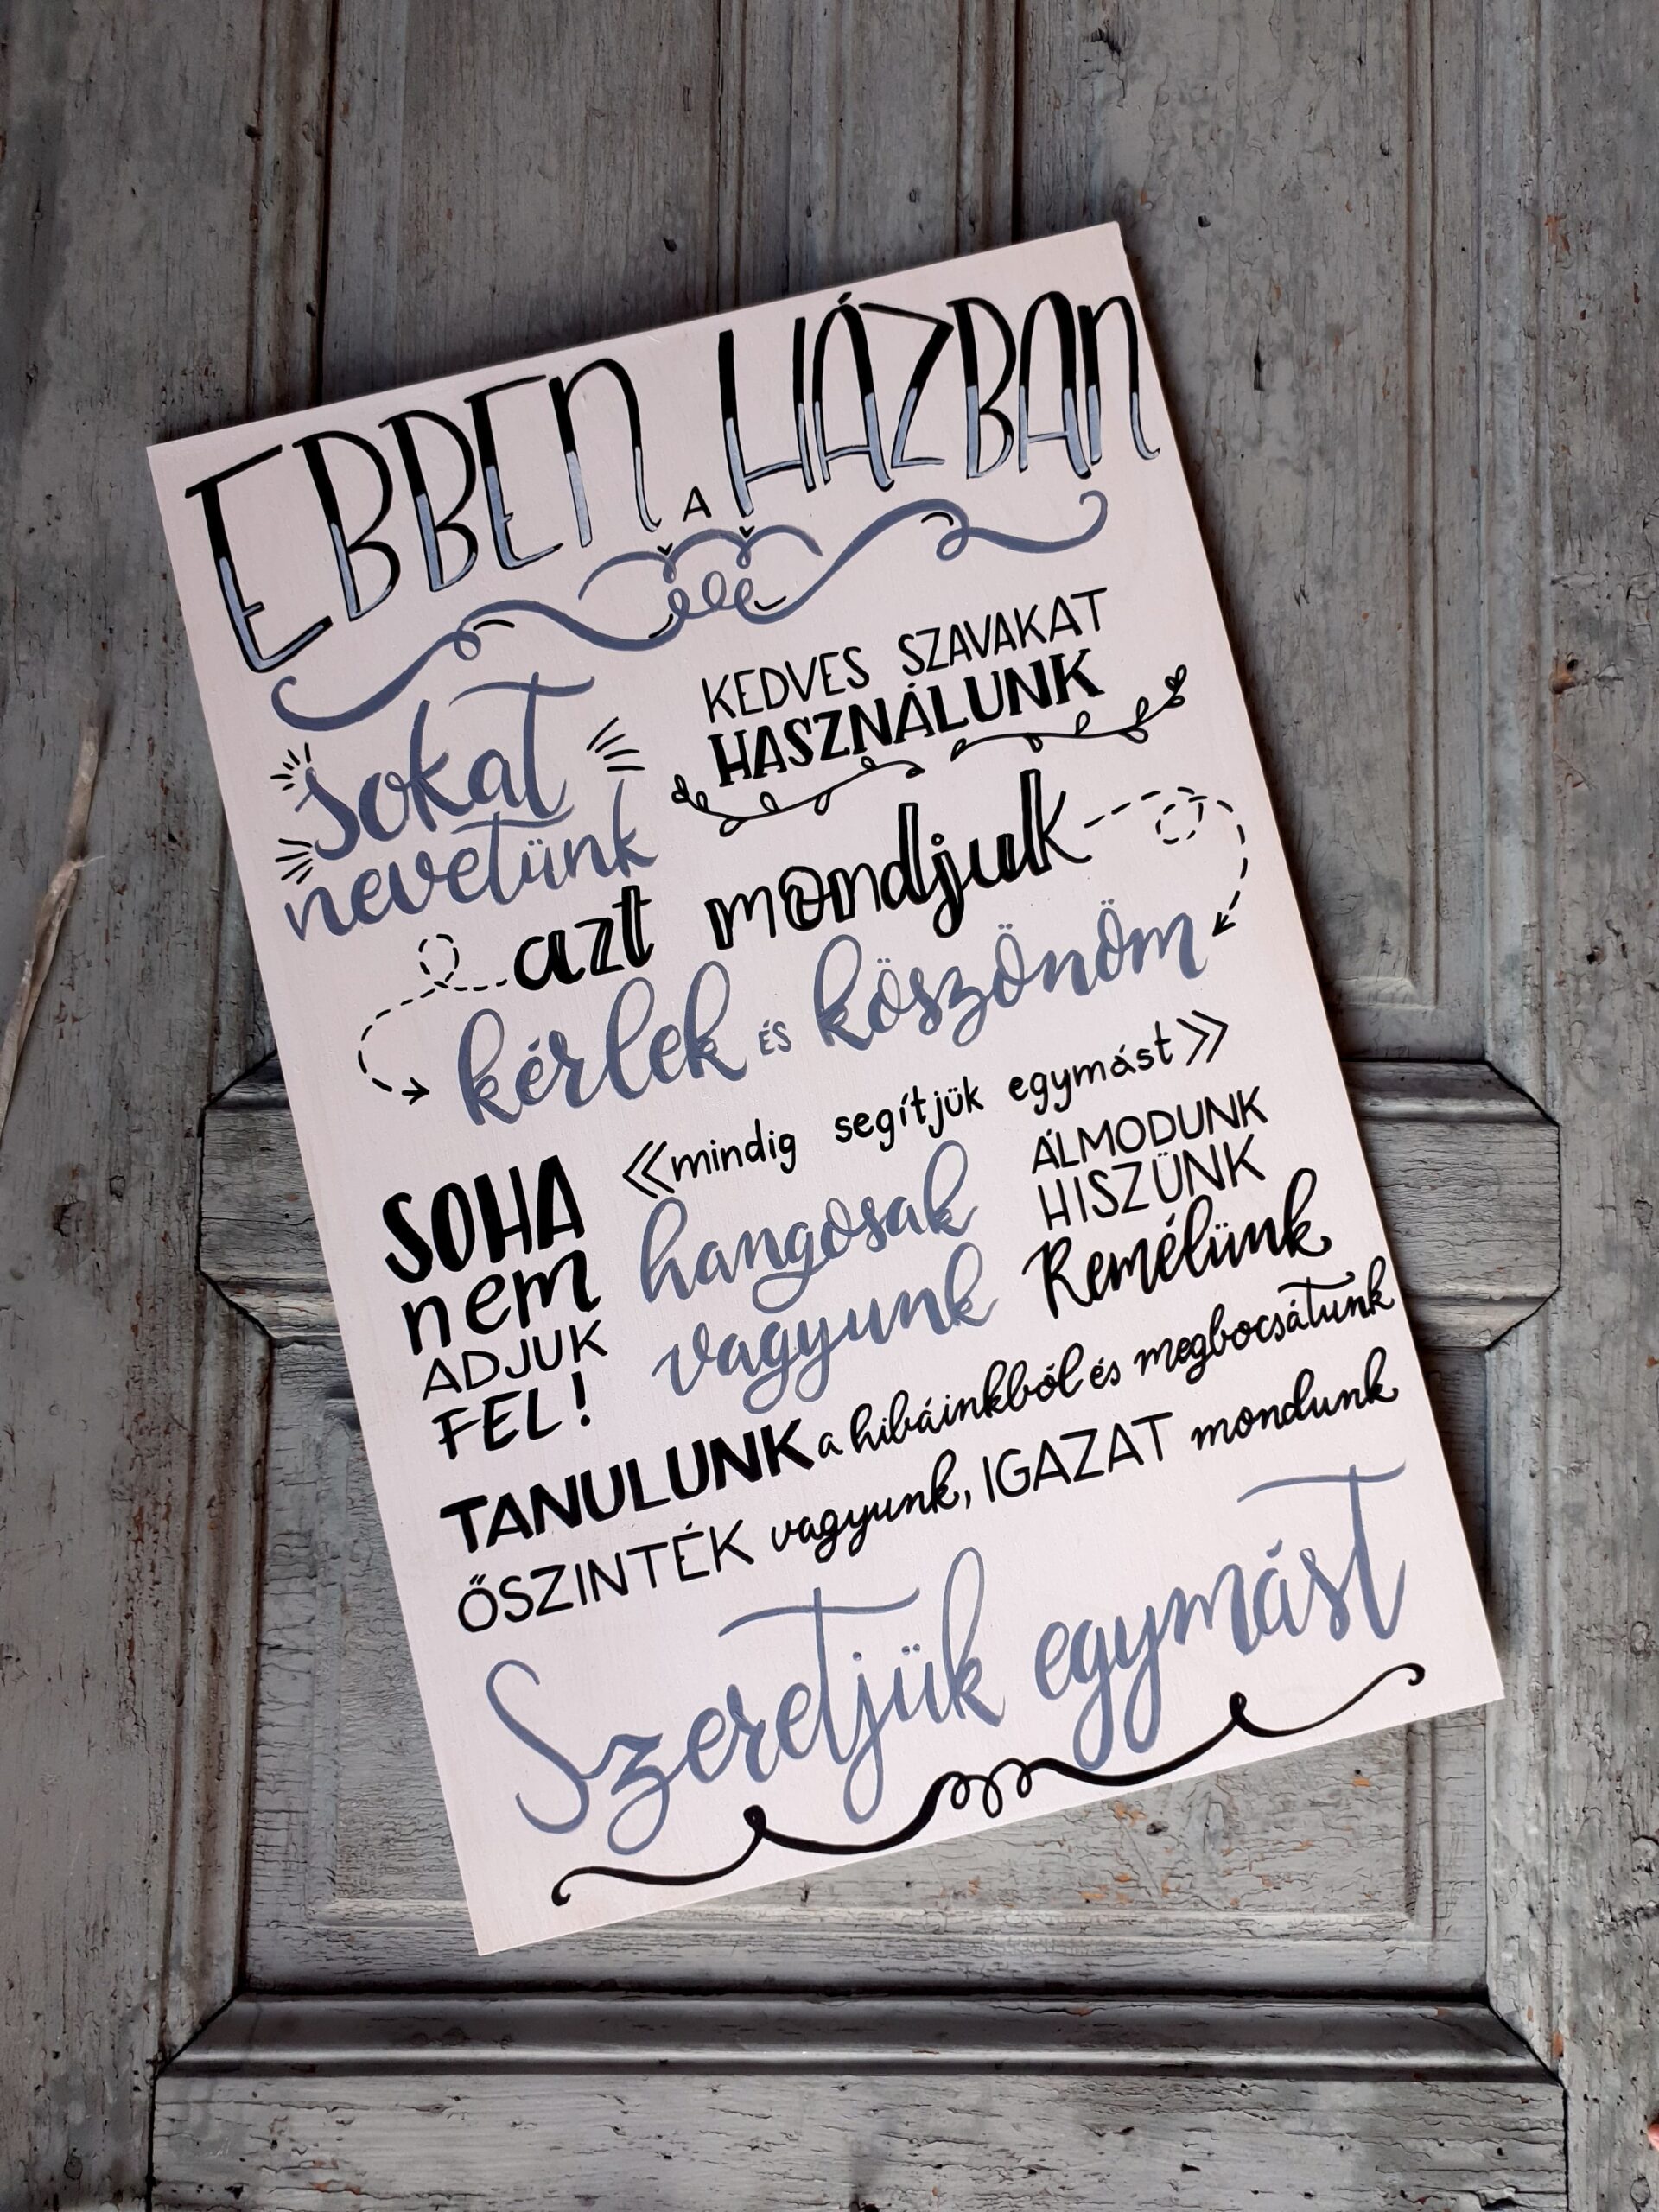 EBBEN A HÁZBAN
sokat
nevetünk
KEDVES SZAVAKAT
HASZNÁLUNK
azt mondjuk
kérlek ÉS köszönöm
«mindig segítjük egymást»
SOHA
nem
ADJUK
FEL!
hangosak
vagyunk
ÁLMODUNK
HISZÜNK
Remélünk
TANULUNK a hibáinkból és megbocsátunk
ŐSZINTÉK vagyunk, IGAZAT mondunk
Szeretjük egymást